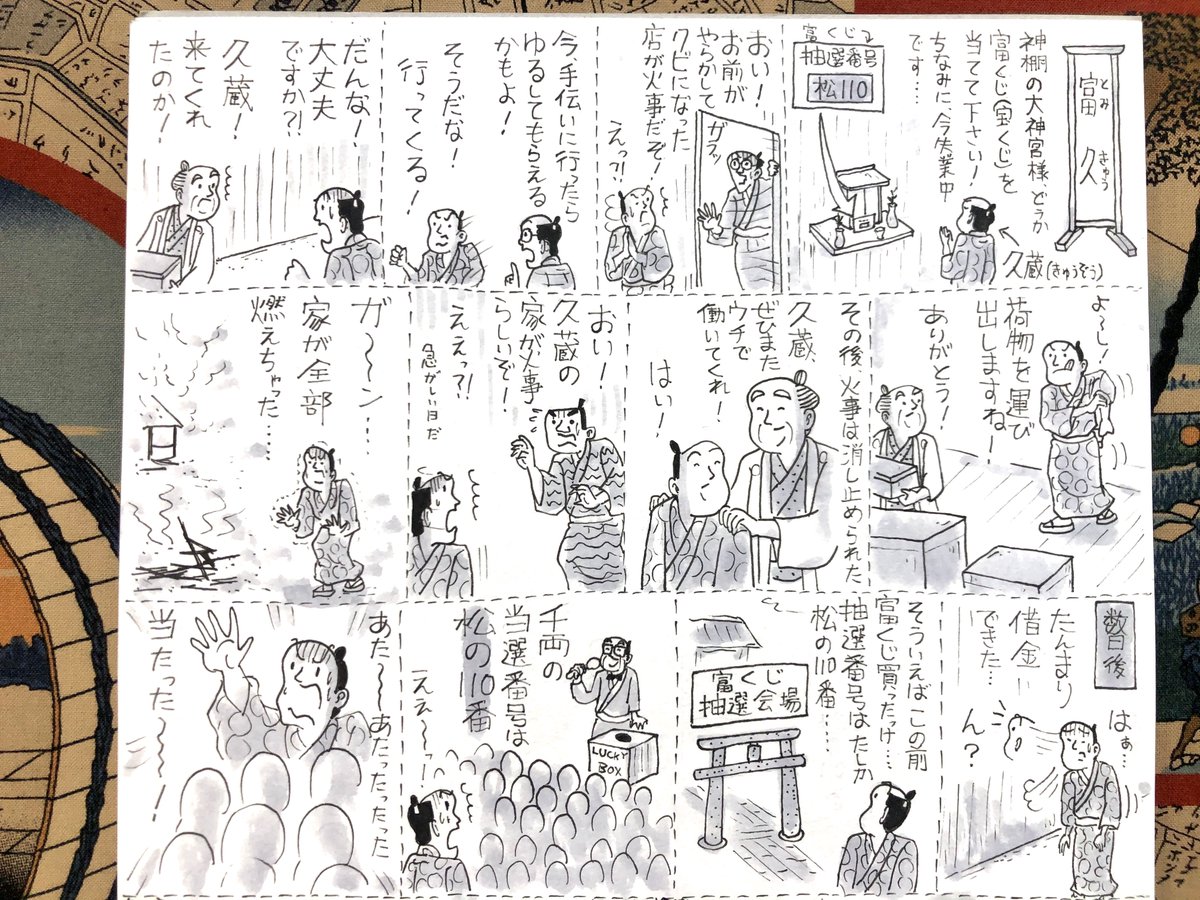 富久
とみ
きゅう
神棚の大神宮様、どうか
富くじ(宝くじ)を
当てて下さい!
ちなみに、今失業中
です…
久蔵(きゅうぞう)
富くじ
抽選番号
松110
おい!
お前が
やらかして
クビになった
店が火事だぞ!
ガラッ
えっ?!
今、手伝いに行ったら
ゆるしてもらえる
かもよ!
そうだな!
行ってくる!
だんな!
大丈夫
ですか?!
久蔵!
来てくれ
たのか!
よ〜し!
荷物を運び
出しますね!
ありがとう!
その後、火事は消し止められた
久蔵、
ぜひまた
ウチで
働いてくれ!
はい!
おい!
久蔵の
家が火事
らしいぞ!
ええっ?!
急がしい日だ
ガ〜〜ン…
家が全部
燃えちゃった……
数日後
はぁ…
たんまり
借金
できた…
ん?
そういえばこの前
富くじ買ったっけ…
抽選番号はたしか
松の110番…
富くじ
抽選会場
千両の
当選番号は
松の110番
LUCKY
BOX
ええ〜っ!
あた〜〜あたったったった
当たった〜〜!